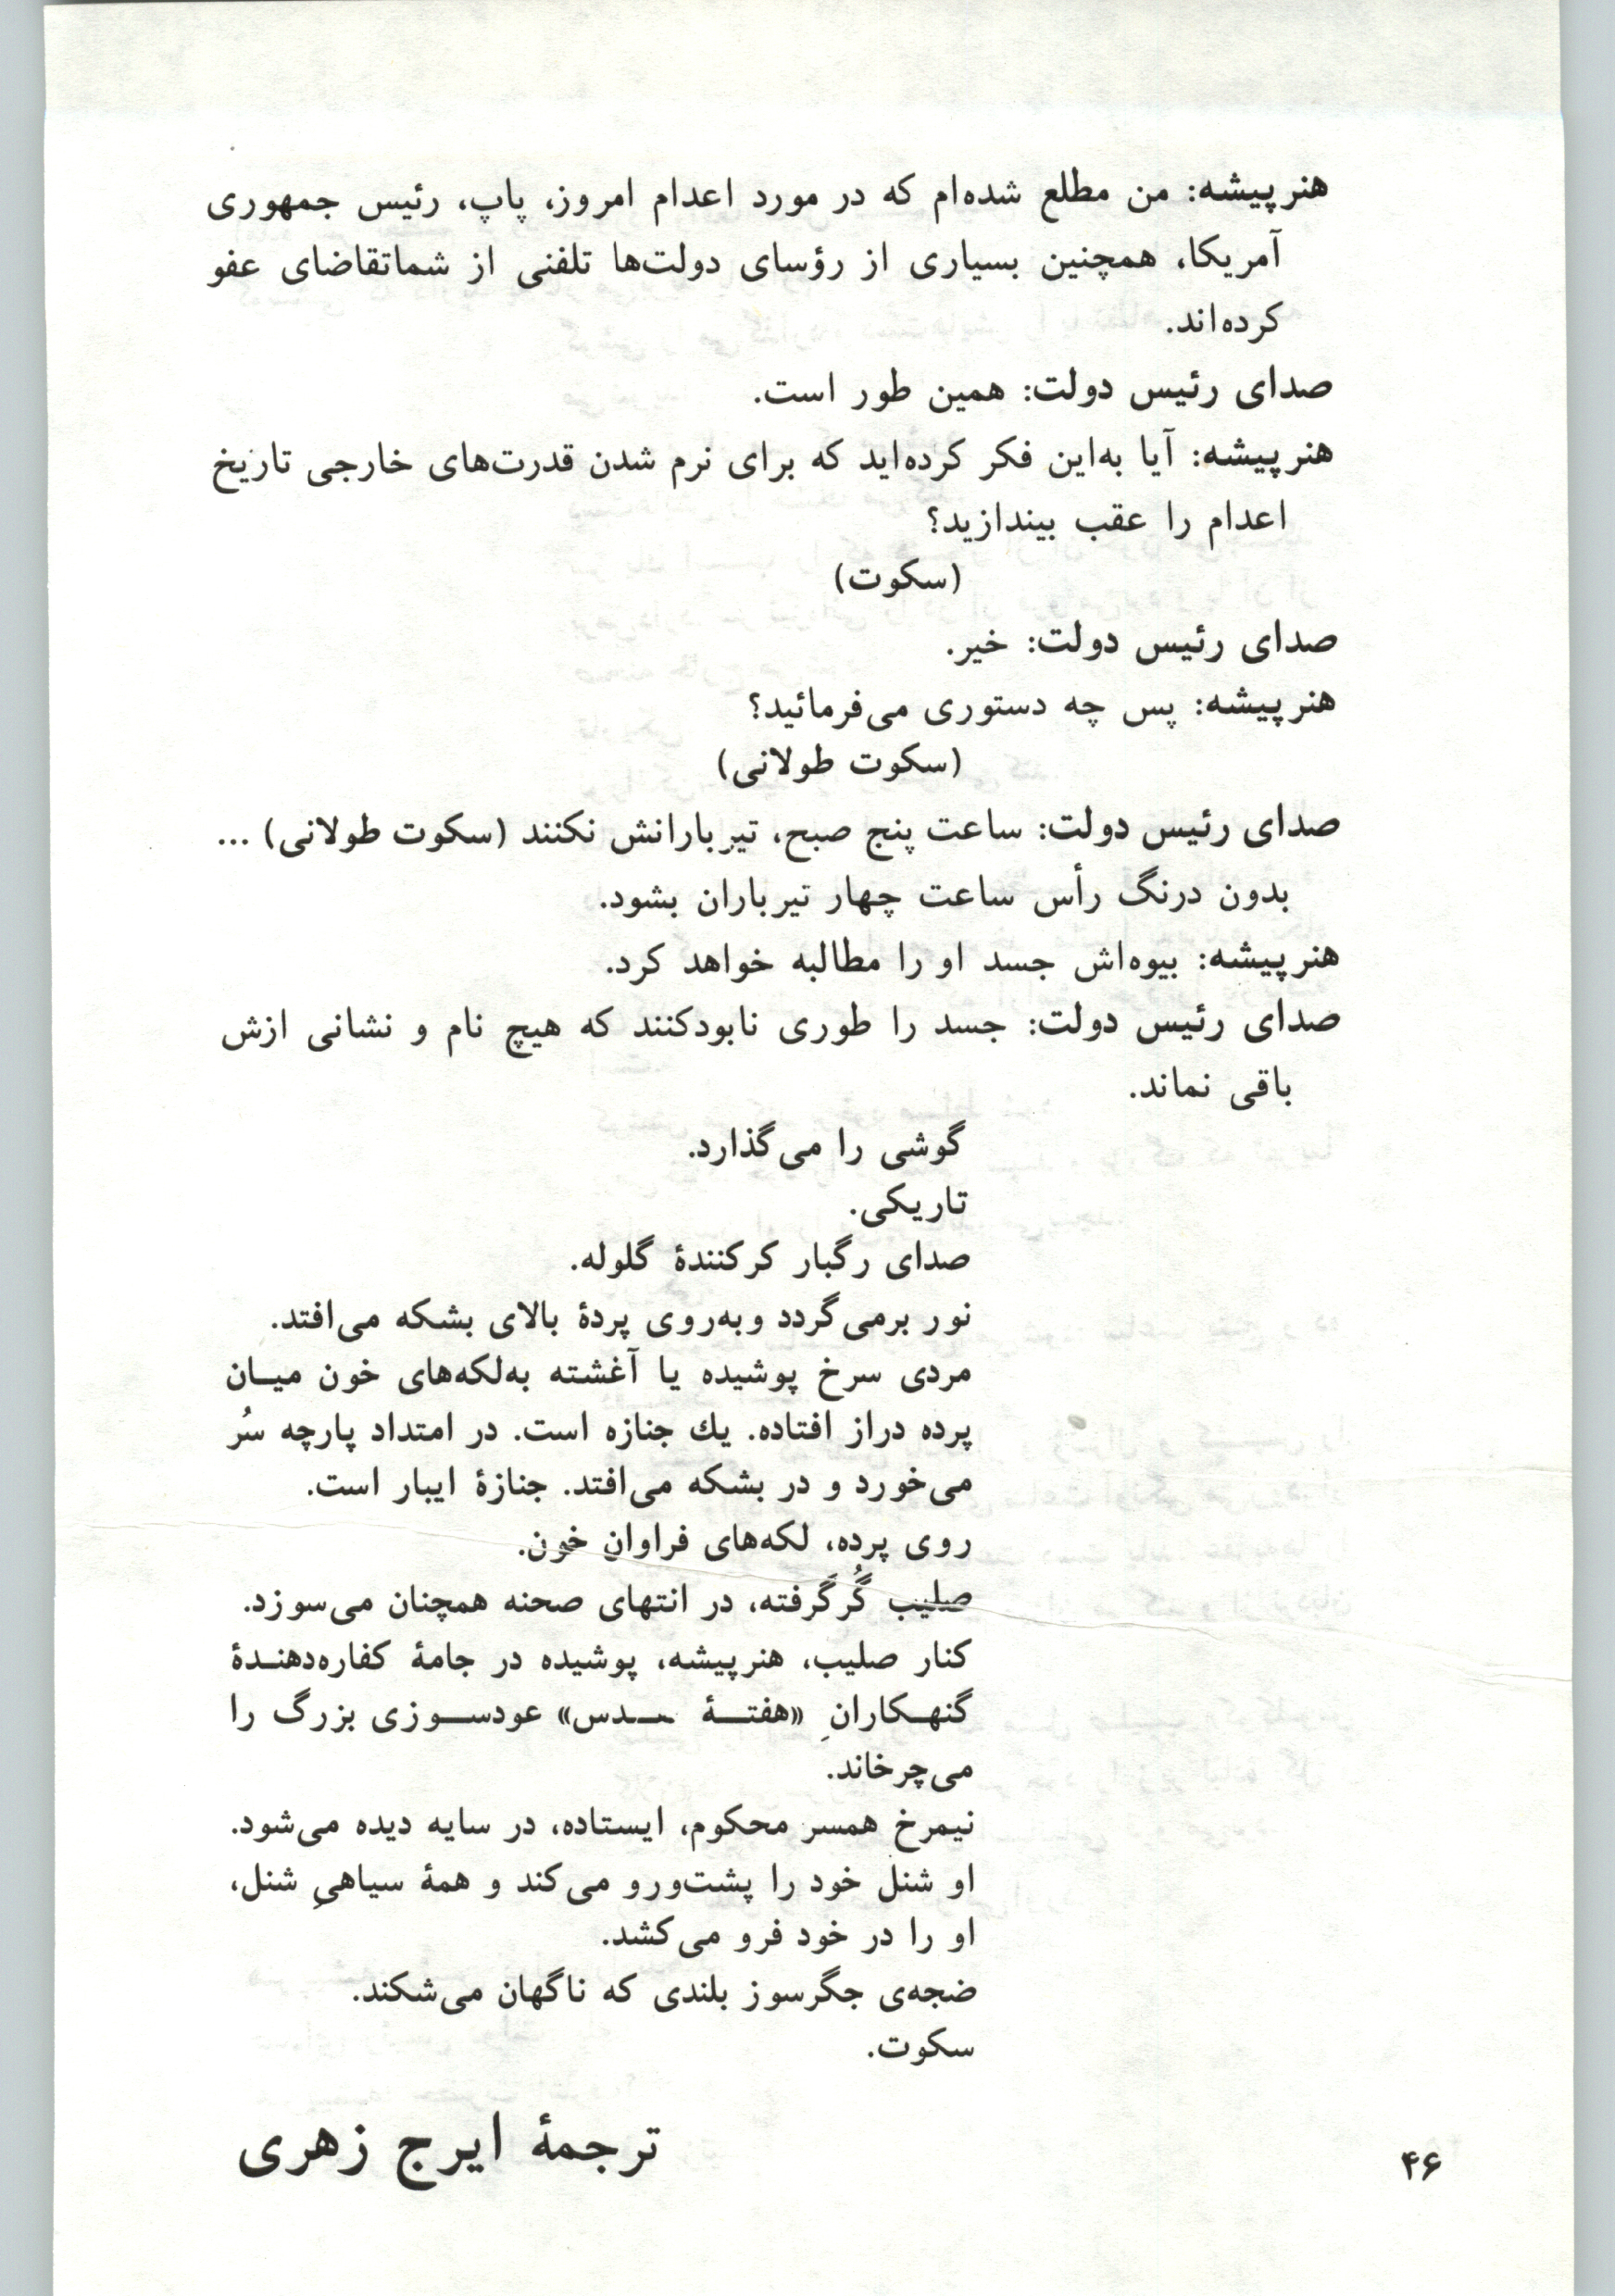 هنرپیشه: من مطلع شده‌ام که در مورد اعدام امروز، پاپ، رئیس جمهوری
آمریکا، همچنین بسیاری از رؤسای دولت‌ها تلفنی از شماتقاضای عفو
کرده‌اند.
صدای رئیس دولت: همین طور است.
هنرپیشه: آیا به‌این فکر کرده‌اید که برای نرم شدن قدرت‌های خارجی تاریخ
اعدام را عقب بیندازید؟
(سکوت)
صدای رئیس دولت: خیر.
هنرپیشه: پس چه دستوری می‌فرمائید؟
(سکوت طولانی)
صدای رئیس دولت: ساعت پنج صبح، تیربارانش نکنند (سکوت طولانی) ...
بدون درنگ رأس ساعت چهار تیرباران بشود.
هنرپیشه: بیوه‌اش جسد او را مطالبه خواهد کرد.
صدای رئیس دولت: جسد را طوری نابودکنند که هیچ نام و نشانی ازش
باقی نماند.
گوشی را می‌گذارد.
تاریکی.
صدای رگبار کرکنندهٔ گلوله.
نور برمی‌گردد وبه‌روی پردهٔ بالای بشکه می‌افتد.
مردی سرخ پوشیده یا آغشته به‌لکه‌های خون میـان
پرده دراز افتاده. یك جنازه است. در امتداد پارچه سُر
می‌خورد و در بشکه می‌افتد. جنازهٔ ایبار است.
روی پرده، لکه‌های فراوانِ خون.
صلیب گُرگَرفته، در انتهای صحنه همچنان می‌سوزد.
کنار صلیب، هنرپیشه، پوشیده در جامهٔ کفاره‌دهنـدهٔ
گنهـکارانِ «هفتـهٔ» عودسـوزی بزرگ را
می‌چرخاند.
نیمرخ همسر محکوم، ایستاده، در سایه دیده می‌شود.
او شنل خود را پشت‌ورو می‌کند و همهٔ سیاهیِ شنل،
او را در خود فرو می‌کشد.
ضجه‌ی جگرسوز بلندی که ناگهان می‌شکند.
سکوت.
ترجمهٔ ایرج زهری
۴۶